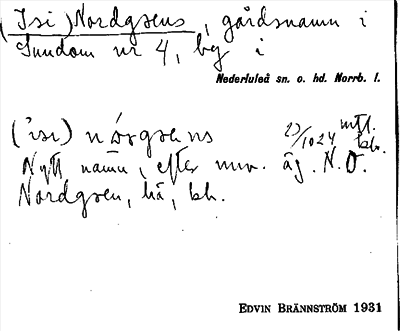 (Isi) Nordgrens, gårdsnamn i
Sundom nr 4, by i
Nederluleå sn. o. hd. Norrb. l.
(ʼisi) nórgrens 23/10 24 mftl. bh.
Nytt namn, efter nuv. äg. N. O.
Nordgren, hä, bh.
EDVIN BRÄNNSTRÖM 1931